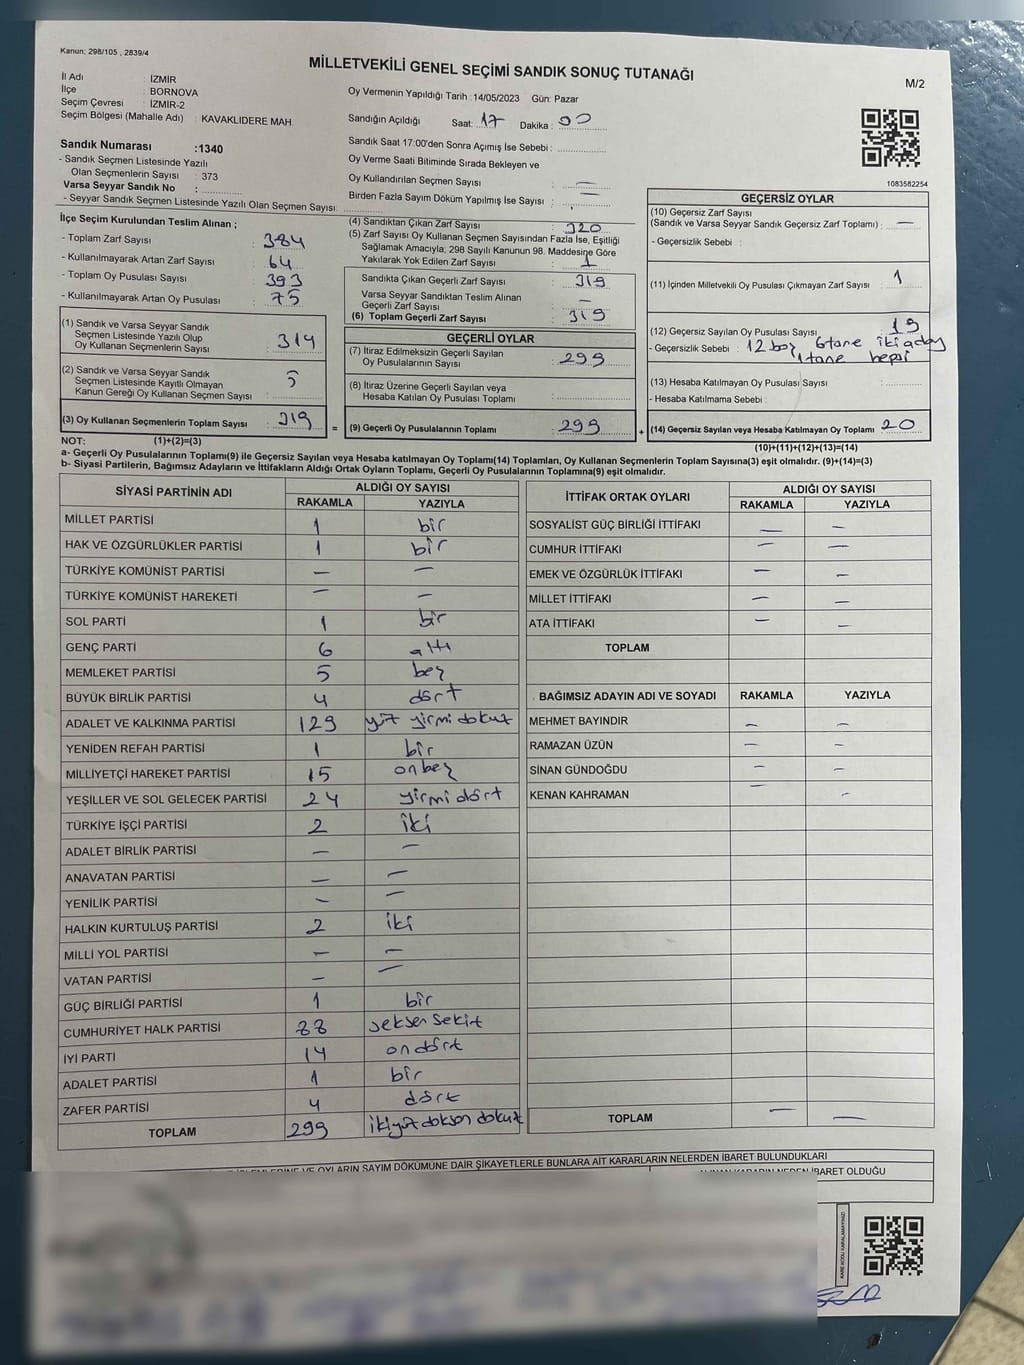 Kanun: 298/105 , 2839/4
MİLLETVEKİLİ GENEL SEÇİMİ SANDIK SONUÇ TUTANAĞI
M/2
İl Adı : İZMİR
İlçe : BORNOVA
Seçim Çevresi : İZMİR-2
Seçim Bölgesi (Mahalle Adı) : KAVAKLIDERE MAH.
Oy Vermenin Yapıldığı Tarih :14/05/2023 Gün: Pazar
Sandığın Açıldığı Saat: 17 Dakika : 00
Sandık Saat 17:00'den Sonra Açımış İse Sebebi :
Oy Verme Saati Bitiminde Sırada Bekleyen ve
Oy Kullandırılan Seçmen Sayısı : —
Birden Fazla Sayım Döküm Yapılmış İse Sayısı :
1083582254
Sandık Numarası :1340
- Sandık Seçmen Listesinde Yazılı
Olan Seçmenlerin Sayısı : 373
Varsa Seyyar Sandık No :
- Seyyar Sandık Seçmen Listesinde Yazılı Olan Seçmen Sayısı:
İlçe Seçim Kurulundan Teslim Alınan ;
- Toplam Zarf Sayısı : 384
- Kullanılmayarak Artan Zarf Sayısı : 64
- Toplam Oy Pusulası Sayısı : 393
- Kullanılmayarak Artan Oy Pusulası : 75
(1) Sandık ve Varsa Seyyar Sandık
Seçmen Listesinde Yazılı Olup
Oy Kullanan Seçmenlerin Sayısı : 314
(2) Sandık ve Varsa Seyyar Sandık
Seçmen Listesinde Kayıtlı Olmayan
Kanun Gereği Oy Kullanan Seçmen Sayısı : 5
(3) Oy Kullanan Seçmenlerin Toplam Sayısı : 319
(4) Sandıktan Çıkan Zarf Sayısı : 320
(5) Zarf Sayısı Oy Kullanan Seçmen Sayısından Fazla İse, Eşitliği
Sağlamak Amacıyla; 298 Sayılı Kanunun 98. Maddesine Göre
Yakılarak Yok Edilen Zarf Sayısı : 1
Sandıkta Çıkan Geçerli Zarf Sayısı : 319
Varsa Seyyar Sandıktan Teslim Alınan
Geçerli Zarf Sayısı : —
(6) Toplam Geçerli Zarf Sayısı : 319
GEÇERLİ OYLAR
(7) İtiraz Edilmeksizin Geçerli Sayılan
Oy Pusulalarının Sayısı : 299
(8) İtiraz Üzerine Geçerli Sayılan veya
Hesaba Katılan Oy Pusulası Toplamı :
= (9) Geçerli Oy Pusulalarının Toplamı : 299 +
GEÇERSİZ OYLAR
(10) Geçersiz Zarf Sayısı
(Sandık ve Varsa Seyyar Sandık Geçersiz Zarf Toplamı) : —
- Geçersizlik Sebebi :
(11) İçinden Milletvekili Oy Pusulası Çıkmayan Zarf Sayısı : 1
(12) Geçersiz Sayılan Oy Pusulası Sayısı : 19
- Geçersizlik Sebebi : 12 boş 6 tane iki aday
1 tane hepsi
(13) Hesaba Katılmayan Oy Pusulası Sayısı :
- Hesaba Katılmama Sebebi :
(14) Geçersiz Sayılan veya Hesaba Katılmayan Oy Toplamı : 20
NOT: (1)+(2)=(3)
(10)+(11)+(12)+(13)=(14)
a- Geçerli Oy Pusulalarının Toplamı(9) ile Geçersiz Sayılan veya Hesaba katılmayan Oy Toplamı(14) Toplamları, Oy Kullanan Seçmenlerin Toplam Sayısına(3) eşit olmalıdır. (9)+(14)=(3)
b- Siyasi Partilerin, Bağımsız Adayların ve İttifakların Aldığı Ortak Oyların Toplamı, Geçerli Oy Pusulalarının Toplamına(9) eşit olmalıdır.
SİYASİ PARTİNİN ADI
ALDIĞI OY SAYISI
RAKAMLA YAZIYLA
MİLLET PARTİSİ 1 bir
HAK VE ÖZGÜRLÜKLER PARTİSİ 1 bir
TÜRKİYE KOMÜNİST PARTİSİ — —
TÜRKİYE KOMÜNİST HAREKETİ — —
SOL PARTİ 1 bir
GENÇ PARTİ 6 altı
MEMLEKET PARTİSİ 5 beş
BÜYÜK BİRLİK PARTİSİ 4 dört
ADALET VE KALKINMA PARTİSİ 129 yüz yirmi dokuz
YENİDEN REFAH PARTİSİ 1 bir
MİLLİYETÇİ HAREKET PARTİSİ 15 onbeş
YEŞİLLER VE SOL GELECEK PARTİSİ 24 yirmi dört
TÜRKİYE İŞÇİ PARTİSİ 2 iki
ADALET BİRLİK PARTİSİ — —
ANAVATAN PARTİSİ — —
YENİLİK PARTİSİ — —
HALKIN KURTULUŞ PARTİSİ 2 iki
MİLLİ YOL PARTİSİ — —
VATAN PARTİSİ — —
GÜÇ BİRLİĞİ PARTİSİ 1 bir
CUMHURİYET HALK PARTİSİ 88 seksen sekiz
İYİ PARTİ 14 on dört
ADALET PARTİSİ 1 bir
ZAFER PARTİSİ 4 dört
TOPLAM 299 ikiyüz doksan dokuz
İTTİFAK ORTAK OYLARI
ALDIĞI OY SAYISI
RAKAMLA YAZIYLA
SOSYALİST GÜÇ BİRLİĞİ İTTİFAKI — —
CUMHUR İTTİFAKI — —
EMEK VE ÖZGÜRLÜK İTTİFAKI — —
MİLLET İTTİFAKI — —
ATA İTTİFAKI — —
TOPLAM
BAĞIMSIZ ADAYIN ADI VE SOYADI RAKAMLA YAZIYLA
MEHMET BAYINDIR — —
RAMAZAN ÜZÜN — —
SİNAN GÜNDOĞDU — —
KENAN KAHRAMAN — —
TOPLAM — —
VE OYLARIN SAYIM DÖKÜMÜNE DAİR ŞİKAYETLERLE BUNLARA AİT KARARLARIN NELERDEN İBARET BULUNDUKLARI
KARARIN NEDEN İBARET OLDUĞU
KARE KODU KARALAMAYINIZ!